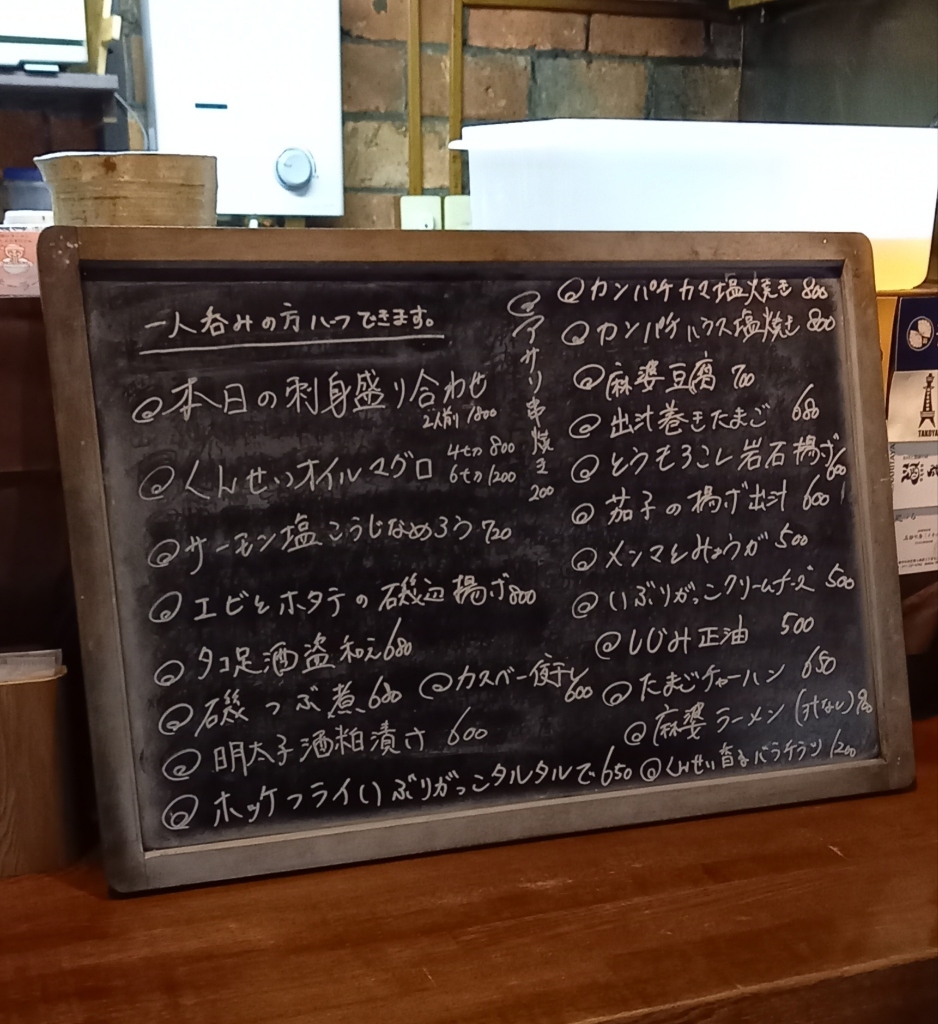 一人呑みの方ハーフできます。
@本日の刺身盛り合わせ
2人前 1800
@くんせいオイルマグロ 4切 800
6切 1200
@サーモン塩こうじなめろう 720
@エビとホタテの磯辺揚げ 800
@タコ足酒盗和え 680
@磯つぶ煮 600
@カスベ一夜干し 600
@明太子酒粕漬け 600
@ホッケフライいぶりがっこタルタルで 650
@アサリ串焼き 200
@カンパチカマ塩焼き 800
@カンパチハラス塩焼き 800
@麻婆豆腐 700
@出汁巻きたまご 680
@とうもろこし岩石揚げ 600
@茄子の揚げ出汁 600
@メンマとみょうが 500
@いぶりがっこクリームチーズ 500
@しじみ正油 500
@たまごチャーハン 650
@麻婆ラーメン(汁なし)
@くんせい旨辛バラチラシ 1200
TAKOYA